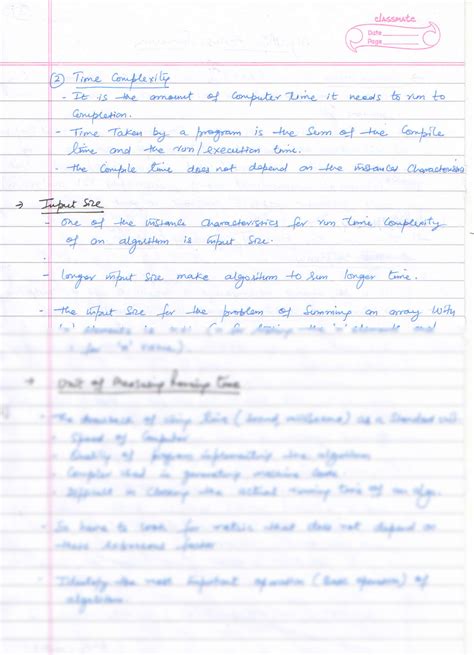 classmate
Date
Page
② Time Complexity
- It is the amount of Computer time it needs to run to
Completion.
- Time Taken by a program is the Sum of the Compile
time and the run/execution time.
- the Compile time does not depend on the instances Characteristics
→ Input Size
- one of the instance characteristics for run time complexity
of an algorithm is input size.
- longer input size make algorithm to run longer time.
- the input size for the problem of Summing an array with
'n' elements is
for 'n' value).
→ Unit of Measuring Running time
- The drawback of using time (second, millisecond) as a Standard unit
- Speed of Computer
- Quality of program implementing the algorithm
- Compiler used in generating machine Code
- Difficult in Clocking the actual running time of an algo.
- So have to look for metric that does not depend on
these factor
- Identify the most important operation (Basic operation) of
algorithm.